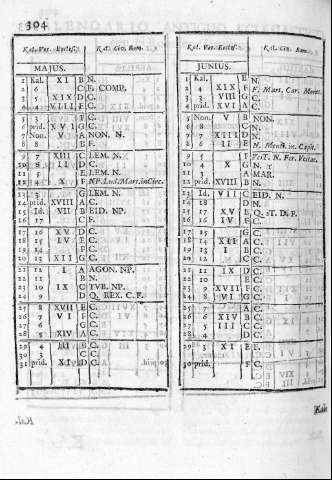 504
Kal. Vet. Eccles. Kal. Civ. Rom.
MAJUS.
1 Kal. XI B N.
2 6 C F. COMP.
3 5 XIX D C.
4 4 VIII F C.
5 3 F C.
6 prid. XVI G C.
7 Non. V A NON. N.
8 8 B F.
9 7 XIII C LEM. N.
10 6 II D C.
11 5 E LEM. N.
12 4 X F NP. Lud. Mart. in Circ.
13 3 G LEM. N.
14 prid. XVIII A C.
15 Id. VII B EID. NP.
16 17 C F.
17 16 XV D C.
18 15 IV E C.
19 14 F C.
20 13 XII G C.
21 12 I A AGON. NP.
22 11 B N.
23 10 IX C TVB. NP.
24 9 D Q. REX. C. F.
25 8 XVII E C.
26 7 VI F C.
27 6 G C.
28 5 XIV A C.
29 4 III B C.
30 3 C C.
31 prid. XI D C.
Kal. Vet. Eccles. Kal. Civ. Rom.
JUNIUS.
1 Kal. E N.
2 4 XIX F F. Mart. Car. Monet.
3 3 VIII G C.
4 prid. XVI A C.
5 Non. V B NON.
6 8 C N.
7 7 XIII D N.
8 6 II E N. Menti. in Capit.
9 5 F VesT. N. Fer. Vestae.
10 4 X G N.
11 3 A MAR.
12 prid. XVIII B N.
13 Id. VII C EID. N.
14 18 D N.
15 17 XV E Q. ST. D. F.
16 16 IV F C.
17 15 G C.
18 14 XII A C.
19 13 I B C.
20 12 C C.
21 11 IX D C.
22 10 E C.
23 9 XVII F C.
24 8 VI G C.
25 7 A C.
26 6 XIV B C.
27 5 III C C.
28 4 D C.
29 3 XI E F.
30 prid. F C.
Kale